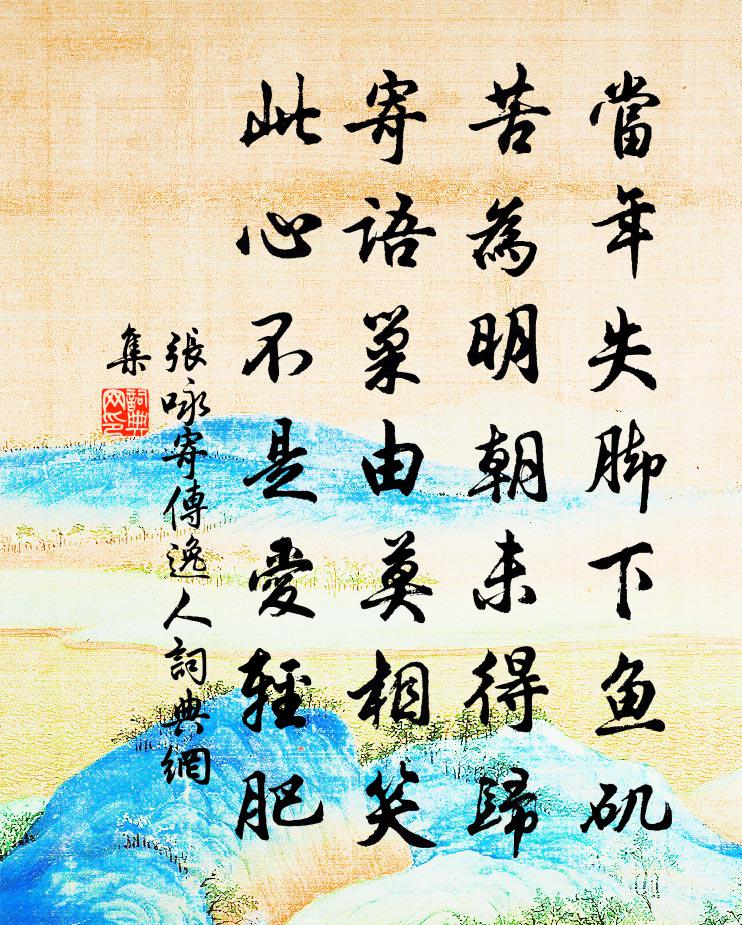 當年失脚下鱼矶
苦為明朝未得歸
寄語巢由莫相笑
此心不是愛輕肥
張咏寄傳逸人詞典網
集
詞典
网印